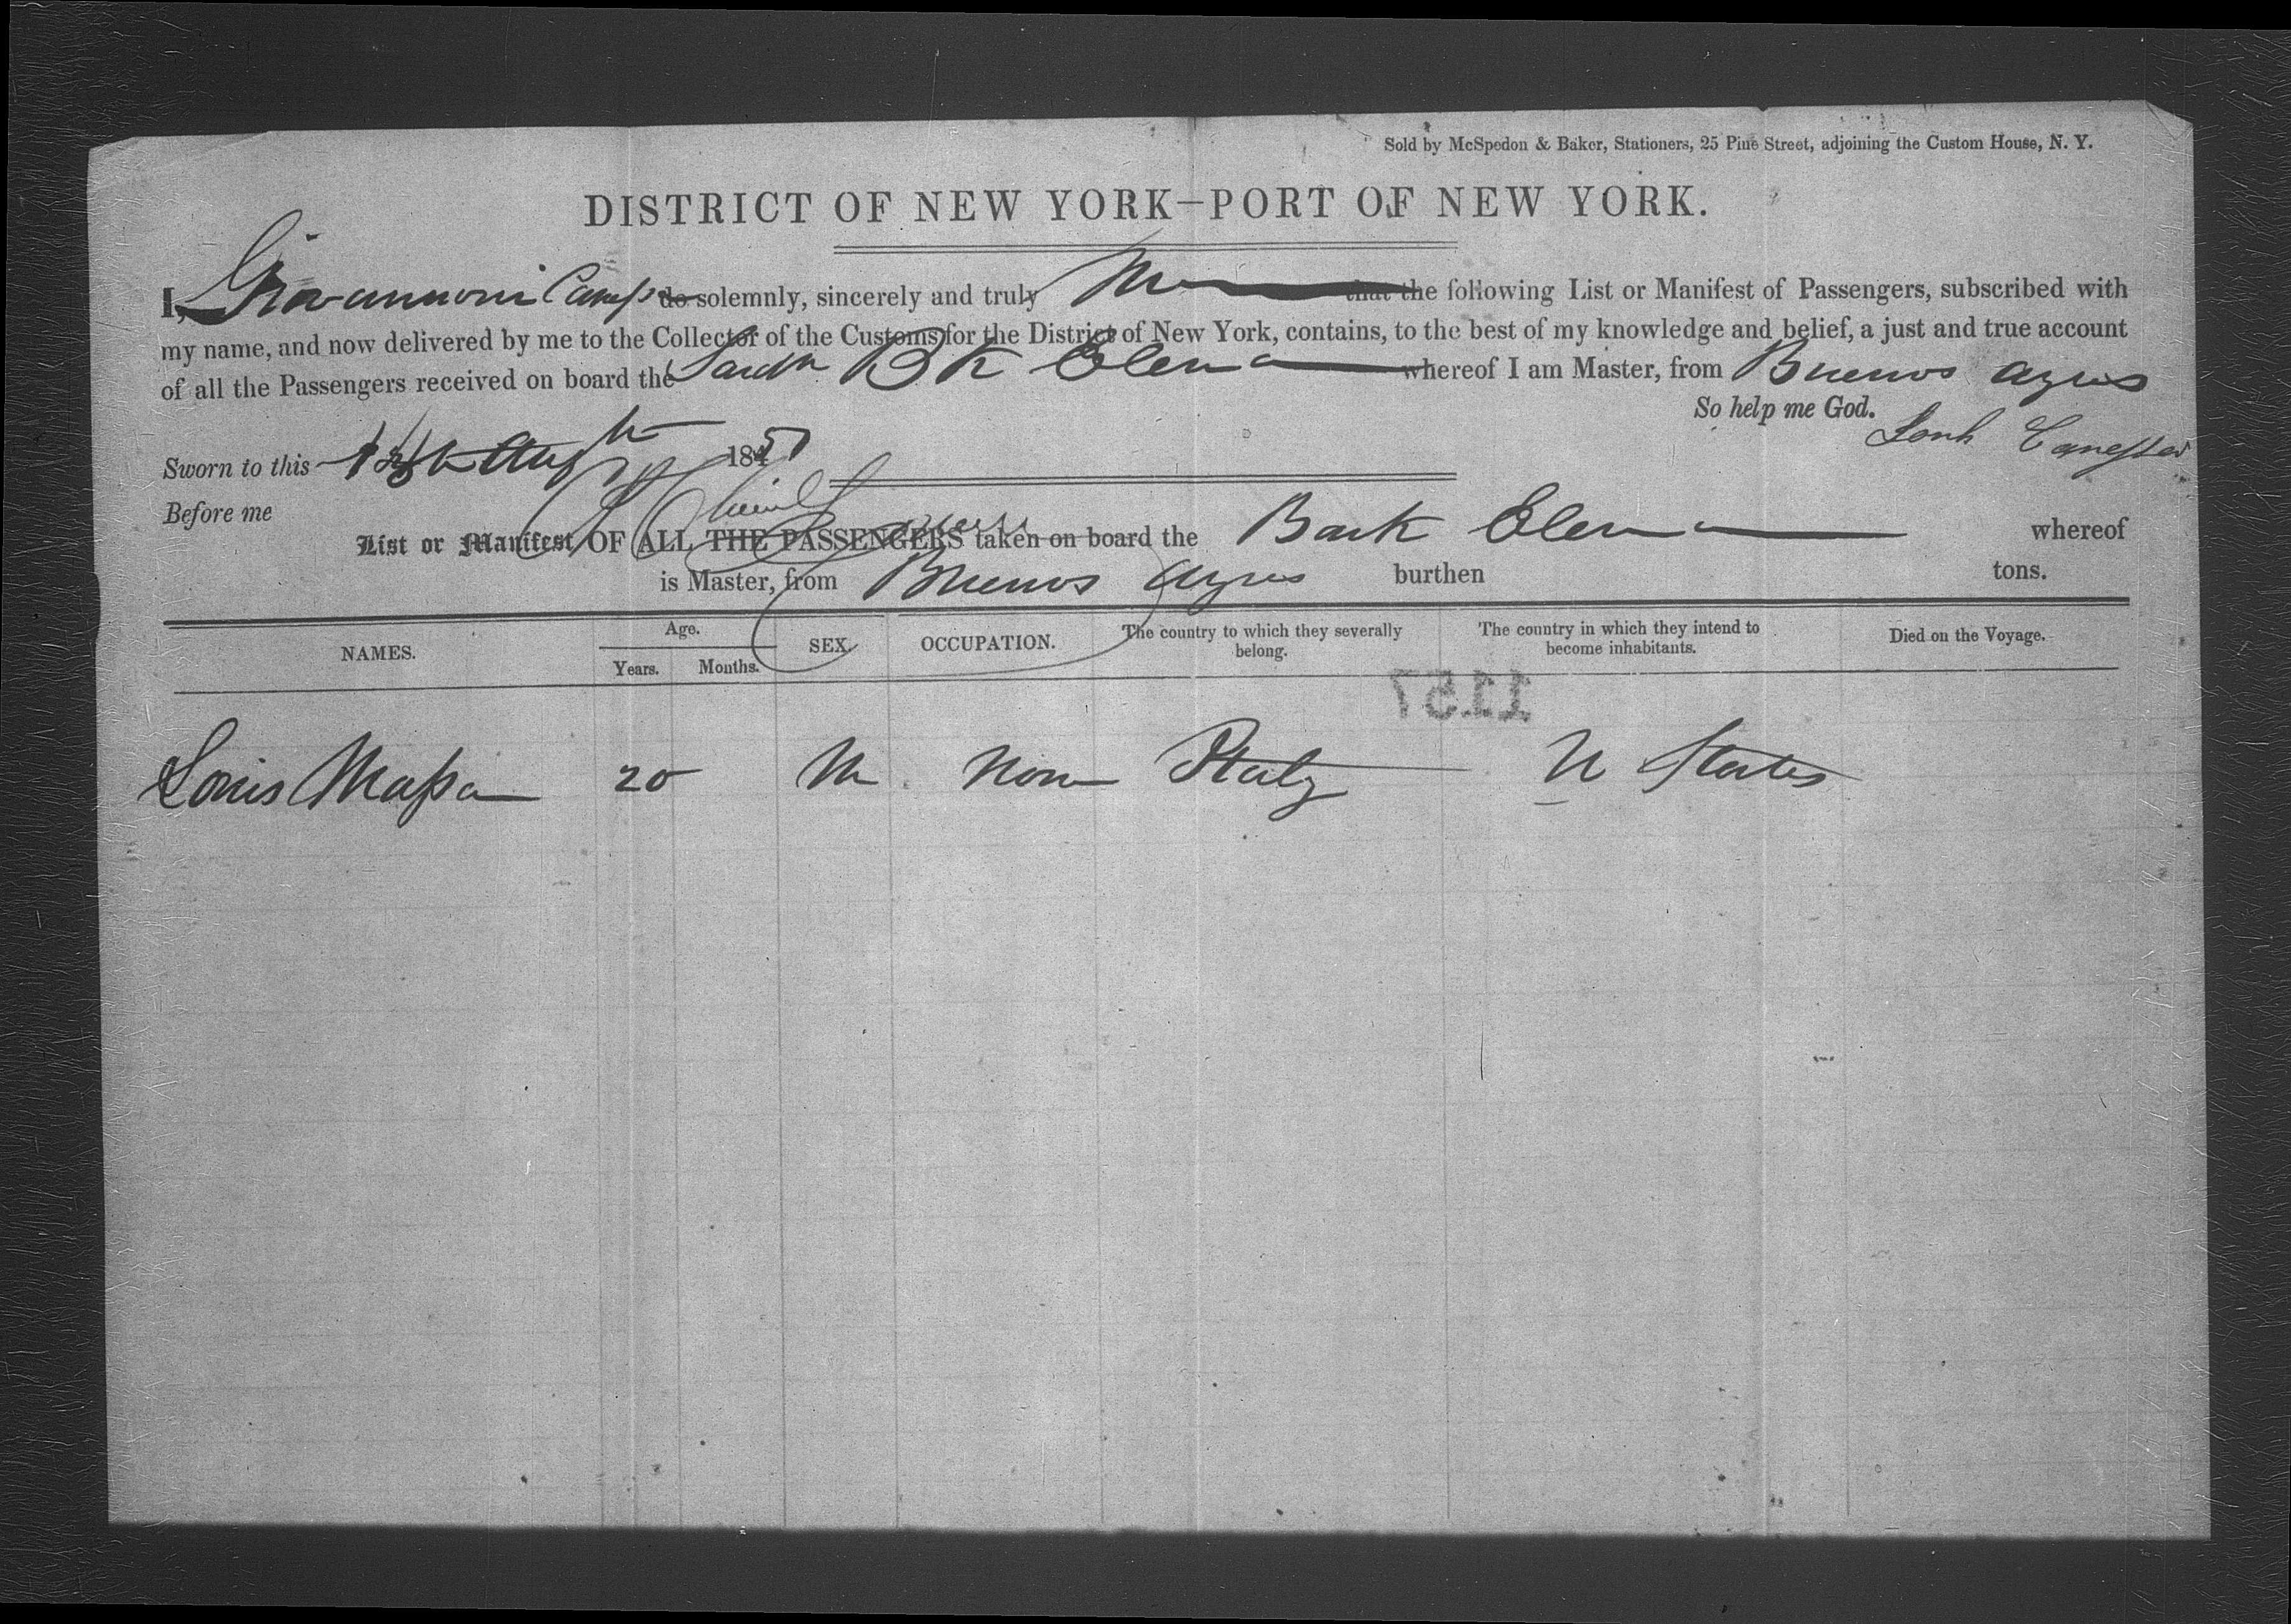 Sold by McSpedon & Baker, Stationers, 25 Pine Street, adjoining the Custom House, N. Y.
DISTRICT OF NEW YORK—PORT OF NEW YORK.
I, do solemnly, sincerely and truly that the following List or Manifest of Passengers, subscribed with
my name, and now delivered by me to the Collector of the Customs for the District of New York, contains, to the best of my knowledge and belief, a just and true account
of all the Passengers received on board the Bk Elena whereof I am Master, from Buenos Ayres
So help me God.
Sworn to this Aug 185
Before me
List or Manifest OF ALL THE PASSENGERS taken on board the Bark Elena whereof
is Master, from Buenos Ayres burthen tons.
NAMES. Age. Years. Months. SEX. OCCUPATION. The country to which they severally belong. The country in which they intend to become inhabitants. Died on the Voyage.
1157
Louis Massa 20 M None Italy U States